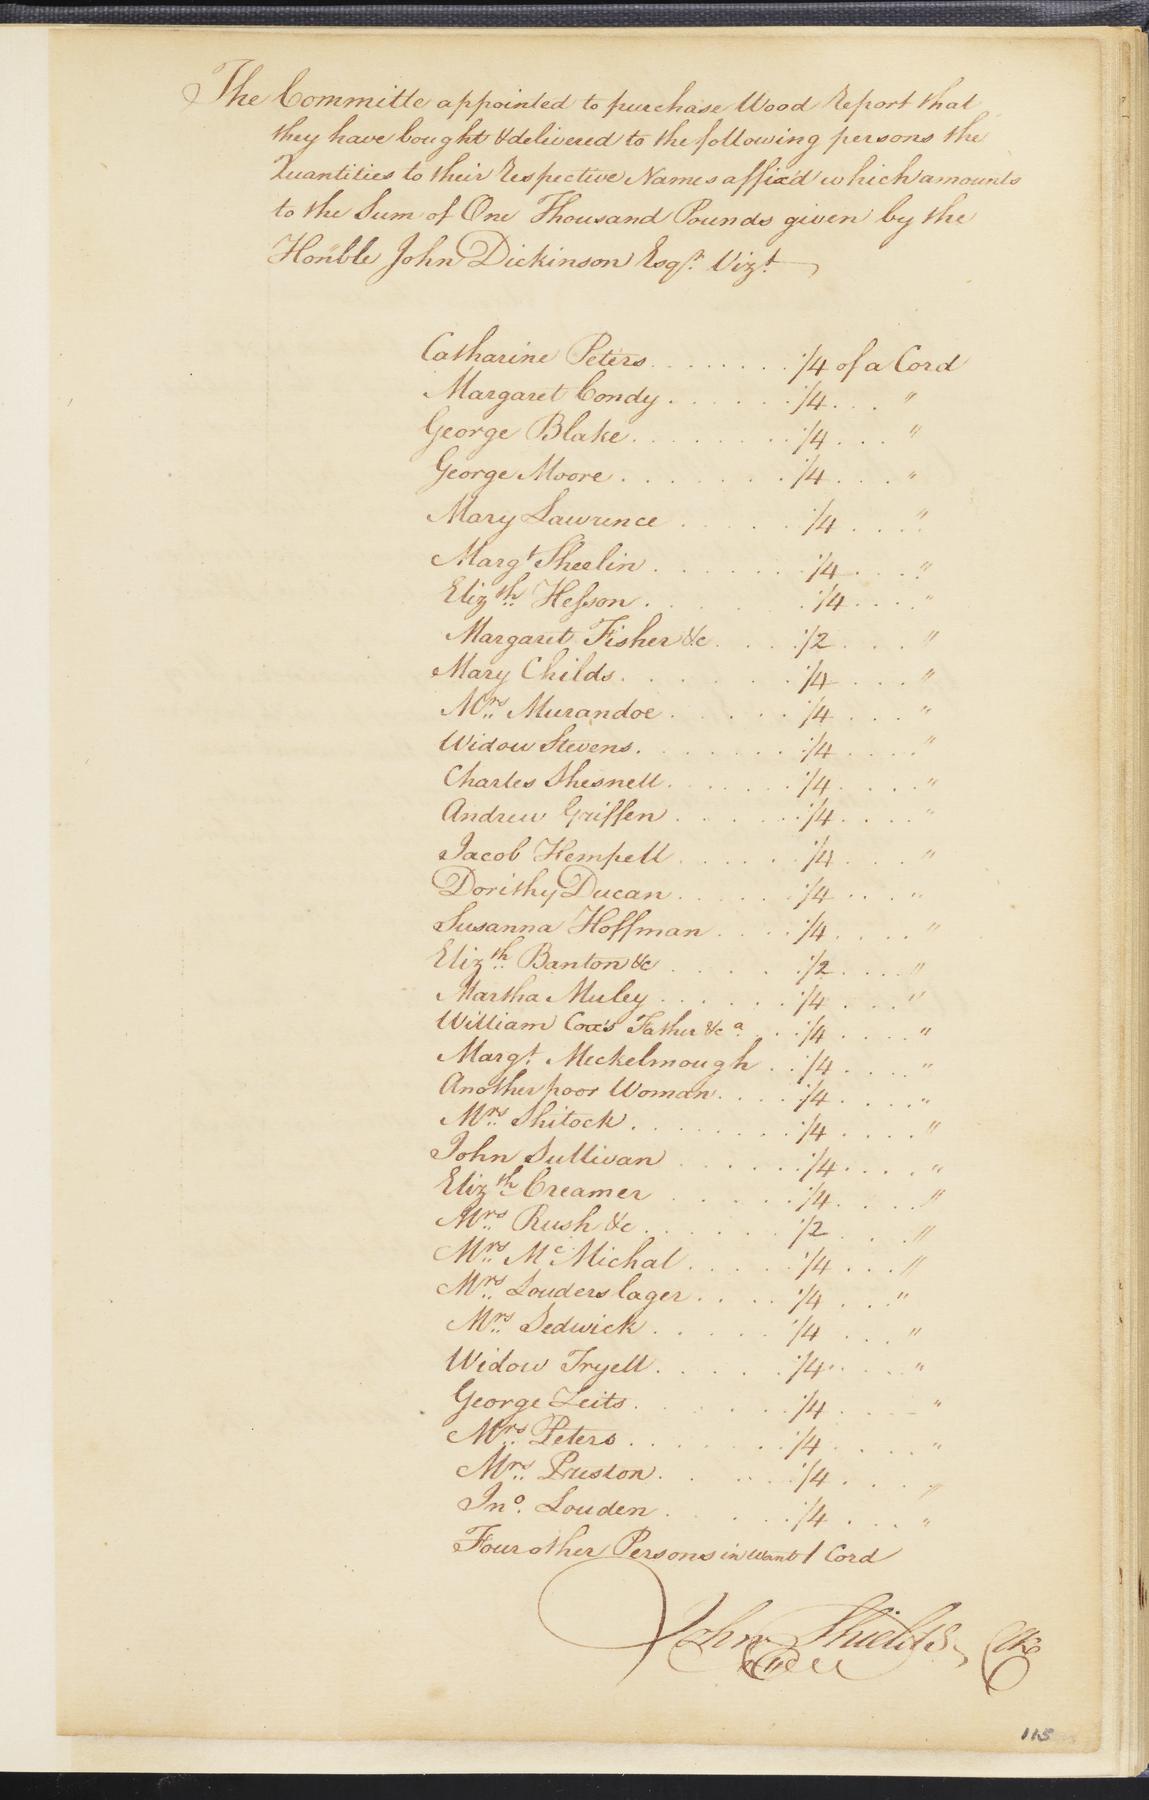 The Committe appointed to purchase Wood Report that
they have bought & delivered to the following persons the
Quantities to their Respective Names affix'd which amounts
to the Sum of One Thousand Pounds given by the
Honble John Dickinson Esqr. Vizt.
Catharine Peters . . . . . . . 1/4 of a Cord
Margaret Condy . . . . . . 1/4 . . . "
George Blake . . . . . . . . 1/4 . . . "
George Moore . . . . . . . 1/4 . . . "
Mary Lawrence . . . . . 1/4 . . . "
Margt Sheelin . . . . . . . 1/4 . . . "
Elizth Hesson . . . . . 1/4 . . . . "
Margaret Fisher &c . . . . 1/2 . . . "
Mary Childs . . . . . . . 1/4 . . . "
Mrs. Murandoe . . . . . 1/4 . . . "
Widow Stevens . . . . . . . 1/4 . . . . "
Charles Shesnell . . . . . . 1/4 . . . . "
Andrew Griffen . . . . . . 1/4 . . . . "
Jacob Kempell . . . . . 1/4 . . . "
Dorithy Ducan . . . . . . 1/4 . . . . "
Susanna Hoffman . . . . 1/4 . . . . "
Elizth Banton &c . . . . . 1/2 . . . . "
Martha Muley . . . . . . 1/4 . . . . "
William Cox's Father &ca . . . 1/4 . . . . "
Margt. Meckelmough . . 1/4 . . . . "
Another poor Woman . . . . 1/4 . . . . "
Mrs. Shitock . . . . . . . . 1/4 . . . . "
John Sullivan . . . . . . 1/4 . . . . "
Elizth Creamer . . . . . 1/4 . . . . "
Mrs Rush &c . . . . . . . 1/2 . . . "
Mrs. McMichal . . . . . 1/4 . . . "
Mrs. Louderslager . . . . 1/4 . . . "
Mrs. Sedwick . . . . . 1/4 . . . "
Widow Tryell . . . . . . 1/4 . . . . "
George Leits . . . . . . . 1/4 . . . . "
Mrs. Peters . . . . . . . 1/4 . . . . "
Mrs. Preston . . . . . 1/4 . . . "
Jno. Louden . . . . . . 1/4 . . . . "
Four other Persons in want 1 Cord
John Shields
115